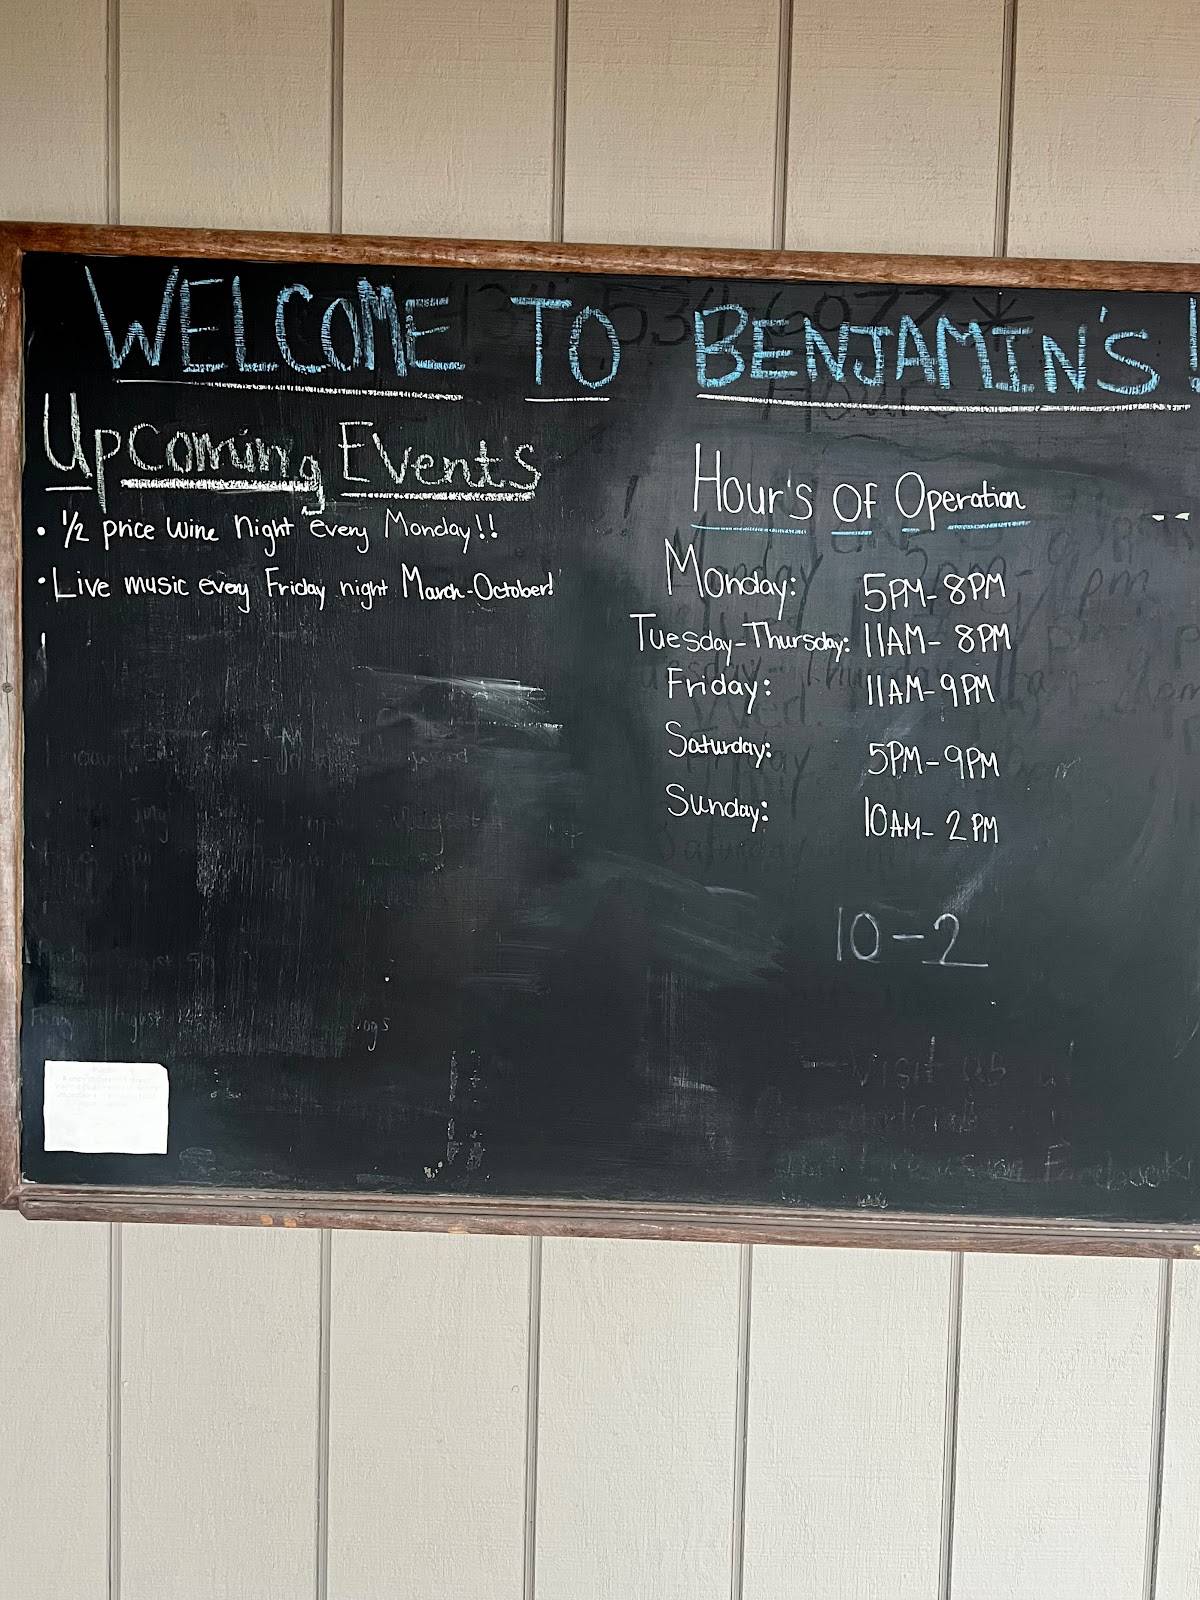 WELCOME TO BENJAMIN'S!
Upcoming Events
• 1/2 price wine night every Monday!!
• Live music every Friday night March-October!
Hour's Of Operation
Monday: 5PM-8PM
Tuesday-Thursday: 11AM-8PM
Friday: 11AM-9PM
Saturday: 5PM-9PM
Sunday: 10AM-2PM
10-2